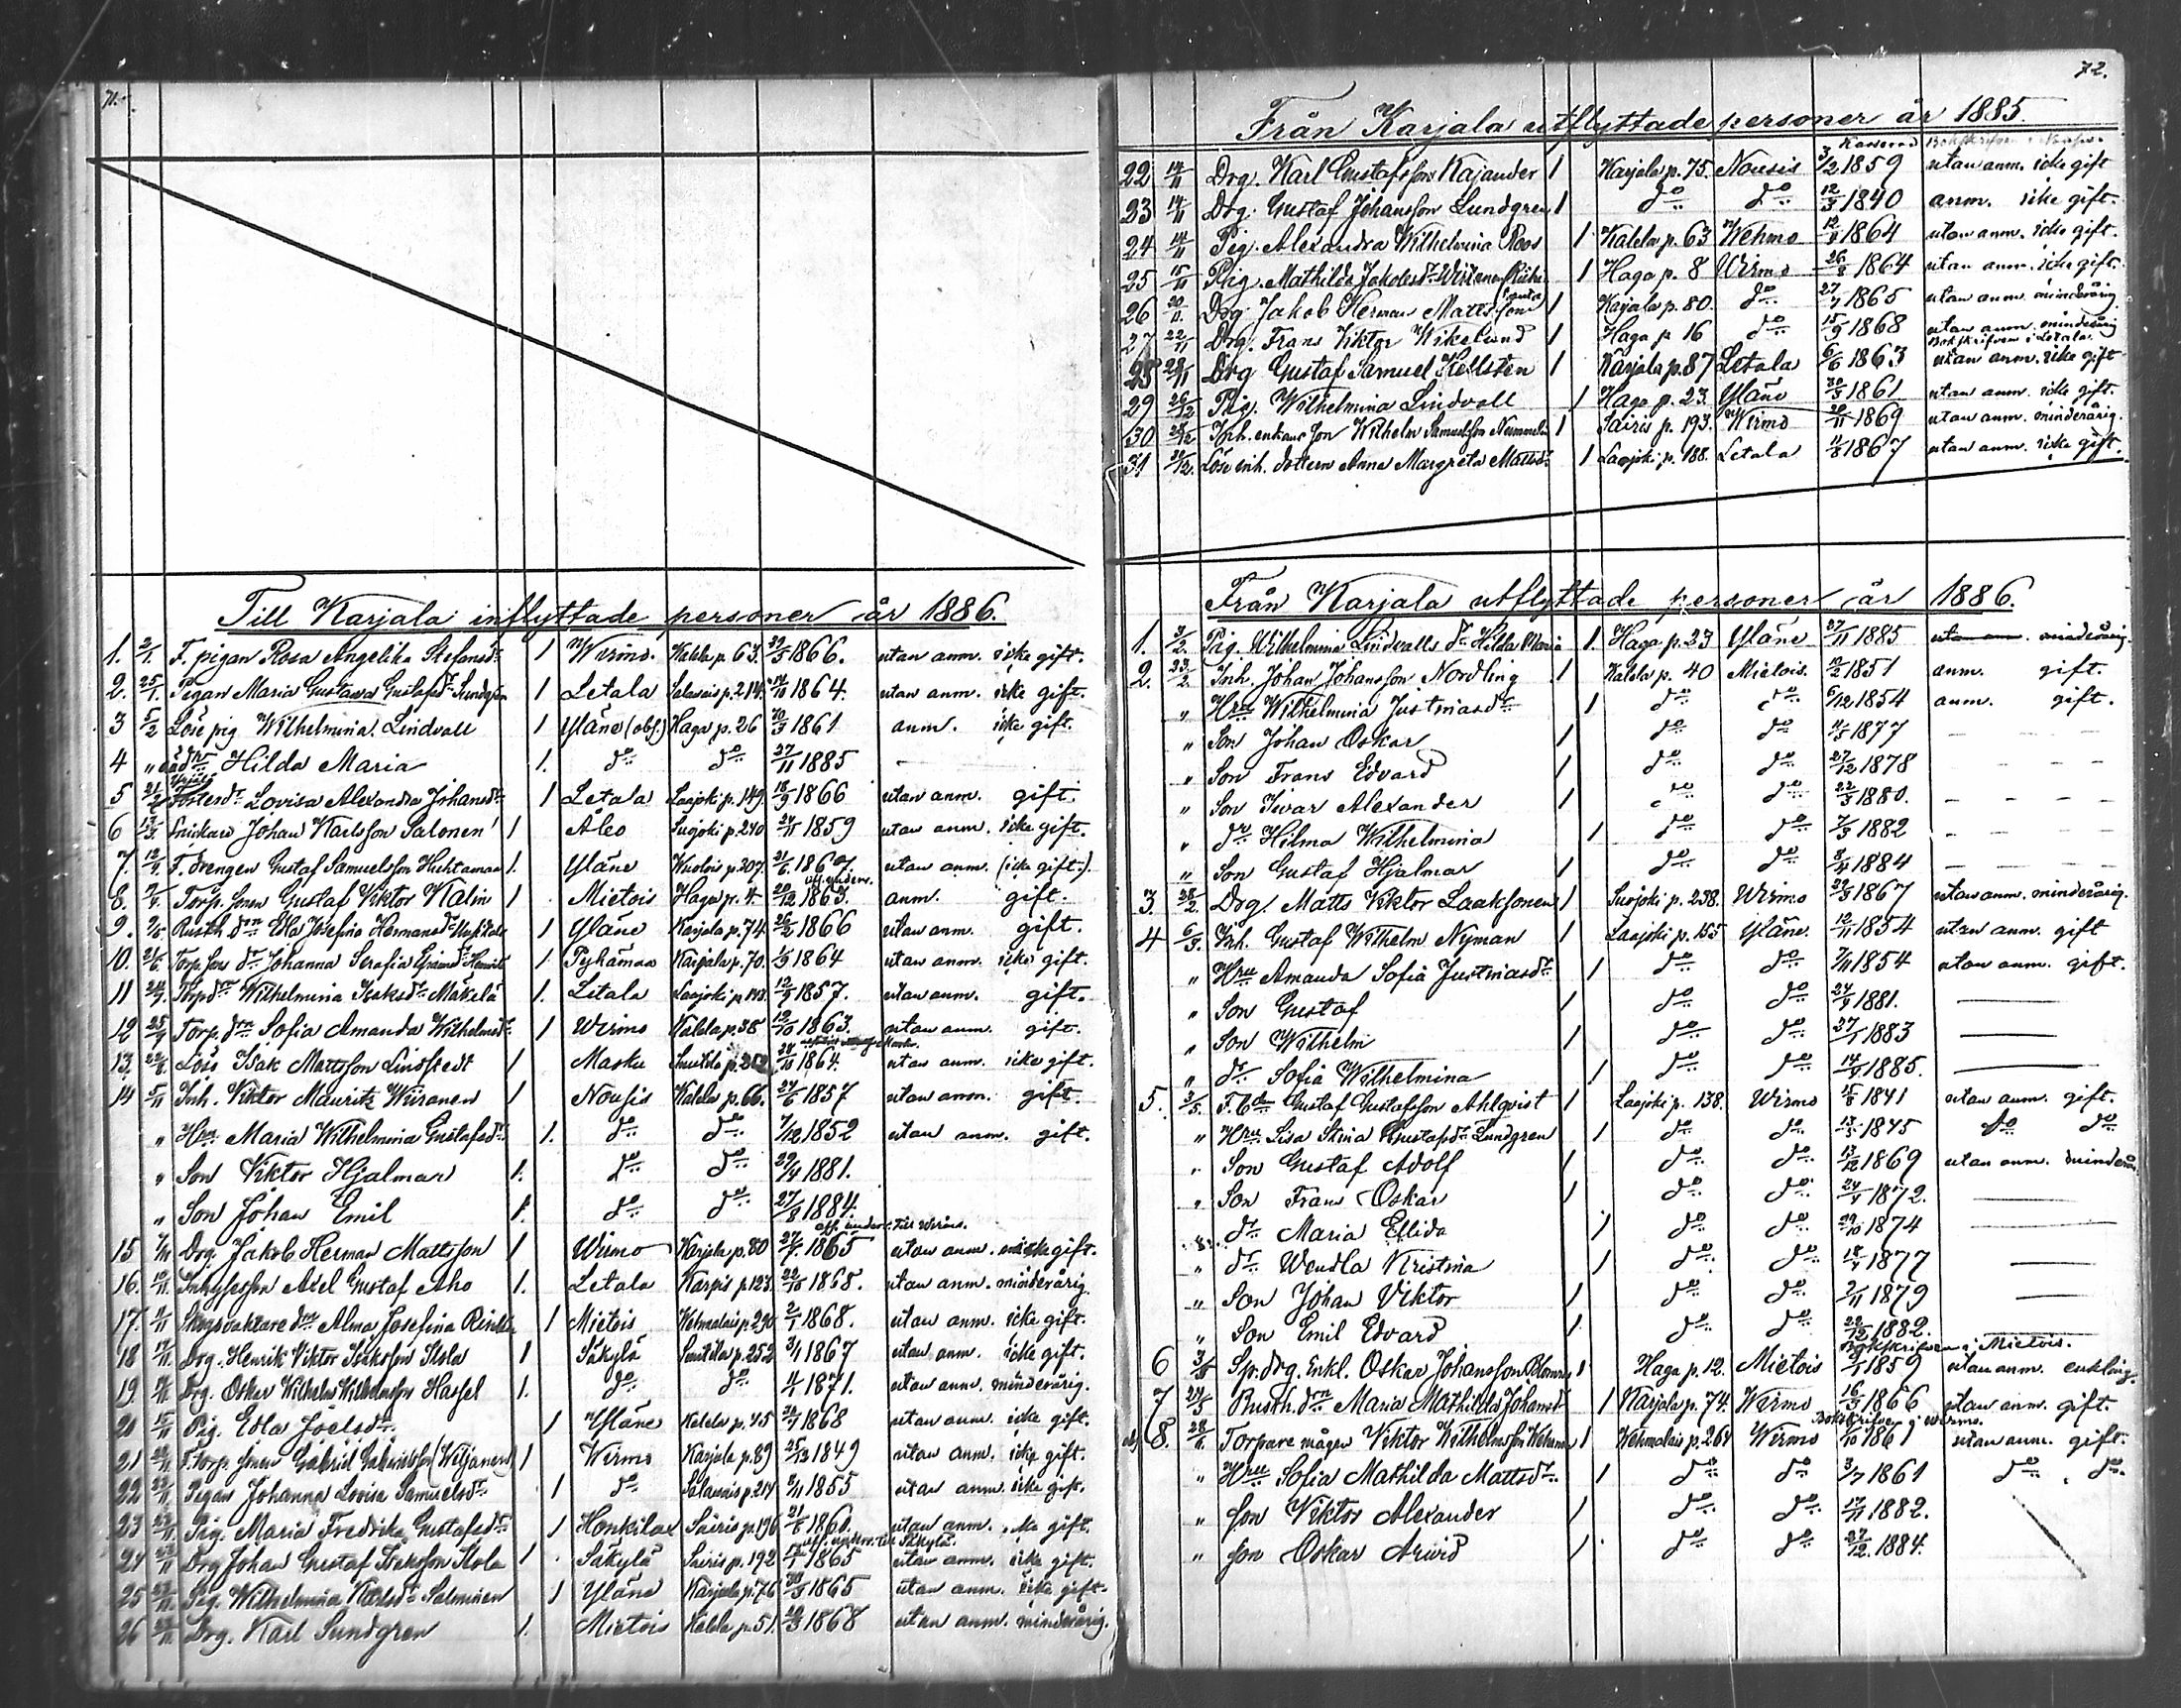 71.
Till Karjala inflyttade personer år 1886.
1. 2/1. F. pigan Rosa Angelika Stefansd:r 1 Wirmo. Kalela p. 63. 29/5 1866. utan anm. icke gift.
2. 25/1. Pigan Maria Gustava Gustafsd:r Lundgren 1 Letala Salavais p. 214. 14/10 1864. utan anm. icke gift.
3 5/2 Löse pig Wilhelmina Lindvall 1 Yläne (obs.) Haga p. 26 30/3 1861 anm. icke gift.
4 " Hilda Maria 1. d:o d:o 27/11 1885 –
5 Fosterd:r Lovisa Alexandra Johansd:r 1 Letala Laajoki p. 149. 18/9 1866 utan anm. gift.
6 13/3 Snickare Johan Karlsson Salonen 1 Åbo Suojoki p. 240 24/11 1859 utan anm. icke gift.
7. 12/4. F. drengen Gustaf Samuelsson Huhtamaa 1. Yläne p. 307. 21/6 1867. utan anm. (icke gift.)
8 Torp. sonen Gustaf Viktor Walin 1 Mietois Haga p. 4. 20/12 1863. anm. gift.
9. Rusth. d:rn Edla Josefina Hermansd:r 1 Yläne Karjala p. 74 26/2 1866 utan anm. gift.
10. 21/6. Torp. d:r Johanna Serafia 1 Pyhämaa Karjala p. 70. 1/5 1864 utan anm. icke gift.
11 24/7. Torp d:rn Wilhelmina Isaksd:r Mäkelä 1. Letala Laajoki p. 12/9 1857. utan anm. gift.
12 25/9 Torp. d:rn Sofia Amanda Wilhelmsd:r 1 Wirmo Kalela p. 38 12/10 1863. utan anm. gift.
13. Löse Isak Mattsson Lindstedt 1 Masku p. 252 24/11 1864. utan anm. icke gift.
14 5/11 Inh. Viktor Mauritz Wiiranen 1 Nousis Kalela p. 66. 24/6 1857 utan anm. gift.
" H:ru Maria Wilhelmina Gustafsd:r 1. d:o d:o 7/12 1852 utan anm. gift.
" Son Viktor Hjalmar 1. d:o d:o 29/4 1881.
" Son Johan Emil 1. d:o d:o 27/8 1884.
15 Drg. Jakob Herman Mattsson 1 Wirmo Karjala p. 80 27/7. 1865 utan anm. icke gift.
16. Inhysesson Axel Gustaf Aho 1. Letala Karpis p. 123. 22/10 1868. utan anm. minderårig.
17. Skogvaktare d:rn Alma Josefina 1 Mietois Wehmalais p. 290 2/1 1868. utan anm. icke gift.
18 Drg. Henrik Viktor Isaksson Skola 1 Säkylä p. 252 3/1 1867 utan anm. icke gift.
19. Drg. Oskar Wilhelm Wilhelmsson Hassel 1. d:o d:o 4/1 1871. utan anm. minderårig.
20 15/11 Pig. Edla Joelsd:r 1 Yläne Kalela p. 45 1868 utan anm. icke gift.
21 F. Torp. sonen Gabriel Gabrielsson (Wiljanen) 1 Wirmo Karjala p. 89 25/12 1849 utan anm. icke gift.
22 Pigan Johanna Lovisa Samuelsd:r 1 d:o Salavais p. 214 1855 utan anm. icke gift.
23 Pig. Maria Fredrika Gustafsd:r 1 Honkilax Sairis p. 196 21/8 1860. utan anm. icke gift.
24 Drg Johan Gustaf Isaksson Skola 1 Säkylä Sairis p. 192 1865 utan anm. icke gift.
25 Pig. Wilhelmina Karlsd:r Salminen 1 Yläne Karjala p. 76 30/5 1865 utan anm. icke gift.
26 Drg. Karl Sundgren 1. Mietois Kalela p. 51. 1868 utan anm. minderårig.
72.
Från Karjala utflyttade personer år 1885.
22 14/11 Drg. Karl Gustafsson Kajander 1 Karjala p. 75. Nousis 3/2 1859 utan anm. icke gift
23 14/11 Drg. Gustaf Johansson Lundgren 1 d:o d:o 12/3 1840 anm. icke gift.
24 14/11 Pig. Alexandra Wilhelmina Roos 1 Kalela p. 63 Wehmo 12/8 1864 utan anm. icke gift.
25 15/11 Pig. Mathilda Jakobsd:r 1 Haga p. 8 Wirmo 26/8 1864 utan anm. icke gift.
26 20/11. Drg. Jakob Herman Mattsson 1 Karjala p. 80. d:o 27/7 1865 utan anm. minderårig
27 22/11 Drg. Frans Viktor Wikelund 1 Haga p 16 d:o 15/9 1868 utan anm. minderårig
Bokskrifven i Letala.
28 29/11 Drg Gustaf Samuel Hellsten 1 Karjala p. 87 Letala 6/6 1863 utan anm. icke gift
29 26/12 Pig. Wilhelmina Lindvall 1 Haga p. 23. Yläne 30/3 1861 utan anm. icke gift.
30 28/12 Inh. enkans son Wilhelm Samuelsson 1 Sairis p. 193. Wirmo 20/11 1869 utan anm. minderårig.
31 Löse inh. dottern Anna Margreta Mattsd:r 1 Laajoki p. 188. Letala 11/8 1867 utan anm. icke gift.
Från Karjala utflyttade personer år 1886.
1. Pig. Wilhelmina Lindvalls d:r Hilda Maria 1. Haga p. 23 Yläne 27/11 1885 utan anm. minderårig.
2. 23/2. Inh. Johan Johansson Nordling 1 Kalela p. 40 Mietois. 12/2 1851 anm. gift.
" H:ru Wilhelmina Justinasd:r 1 d:o d:o 6/12 1854 anm. gift.
" Son Johan Oskar 1 d:o d:o 11/5 1877 – – – –
" Son Frans Edvard 1 d:o d:o 27/12 1878 – – – –
" Son Ivar Alexander 1 d:o d:o 22/3 1880. – – – –
" d:r Hilma Wilhelmina 1 d:o d:o 7/3 1882 – – – –
" Son Gustaf Hjalmar 1 d:o d:o 8/4 1884 – – – –
3. 28/2. Drg. Matts Viktor Laaksonen 1 Suojoki p. 238. Wirmo 29/3 1867 utan anm. minderårig.
4 6/3. Inh. Gustaf Wilhelm Nyman 1 Laajoki p. 155 Yläne. 12/11 1854 utan anm. gift
" H:ru Amanda Sofia Justinasd:r 1 d:o d:o 7/11 1854 utan anm. gift.
" Son Gustaf 1 d:o d:o 24/9 1881. —
" Son Wilhelm 1 d:o d:o 27/1 1883 —
" d:r Sofia Wilhelmina 1 d:o d:o 14/4 1885. —
5. 3/5. Gustaf Gustafsson Ahlqvist 1 Laajoki p. 138. Wirmo 15/8 1841 utan anm. gift.
" H:ru Lisa Stina Gustafsd:r Lundgren 1 d:o d:o 13/5 1845 d:o d:o
" Son Gustaf Adolf 1 d:o d:o 13/12 1869 utan anm. minderår.
" Son Frans Oskar 1 d:o d:o 24/4 1872. —
" d:r Maria Ellida 1 d:o d:o 29/10 1874 —
" d:r Wendla Kristina 1 d:o d:o 18/4 1877 —
" Son Johan Viktor 1 d:o d:o 2/11 1879 —
" Son Emil Edvard 1 d:o d:o 22/12 1882. —
Bokskrifven i Mietois.
6 3/5 Sp. drg. Enkl. Oskar Johansson 1 Haga p. 12. Mietois 1859 utan anm. enkling.
7 24/5 Rusth. d:rn Maria Mathilda Johansd:r 1 Karjala p. 74. Wirmo 16/3 1866 utan anm. gift.
Bokskrifven i Wirmo.
8. 28/6. Torpare mågen Viktor Wilhelmsson 1 Wehmalais p. 264 Wirmo 1861 utan anm. gift.
" H:ru Sofia Mathilda Mattsd:r 1 d:o d:o 3/7 1861 d:o d:o
" Son Viktor Alexander 1 d:o d:o 17/11 1882.
" Son Oskar Arvid 1 d:o d:o 27/12. 1884.